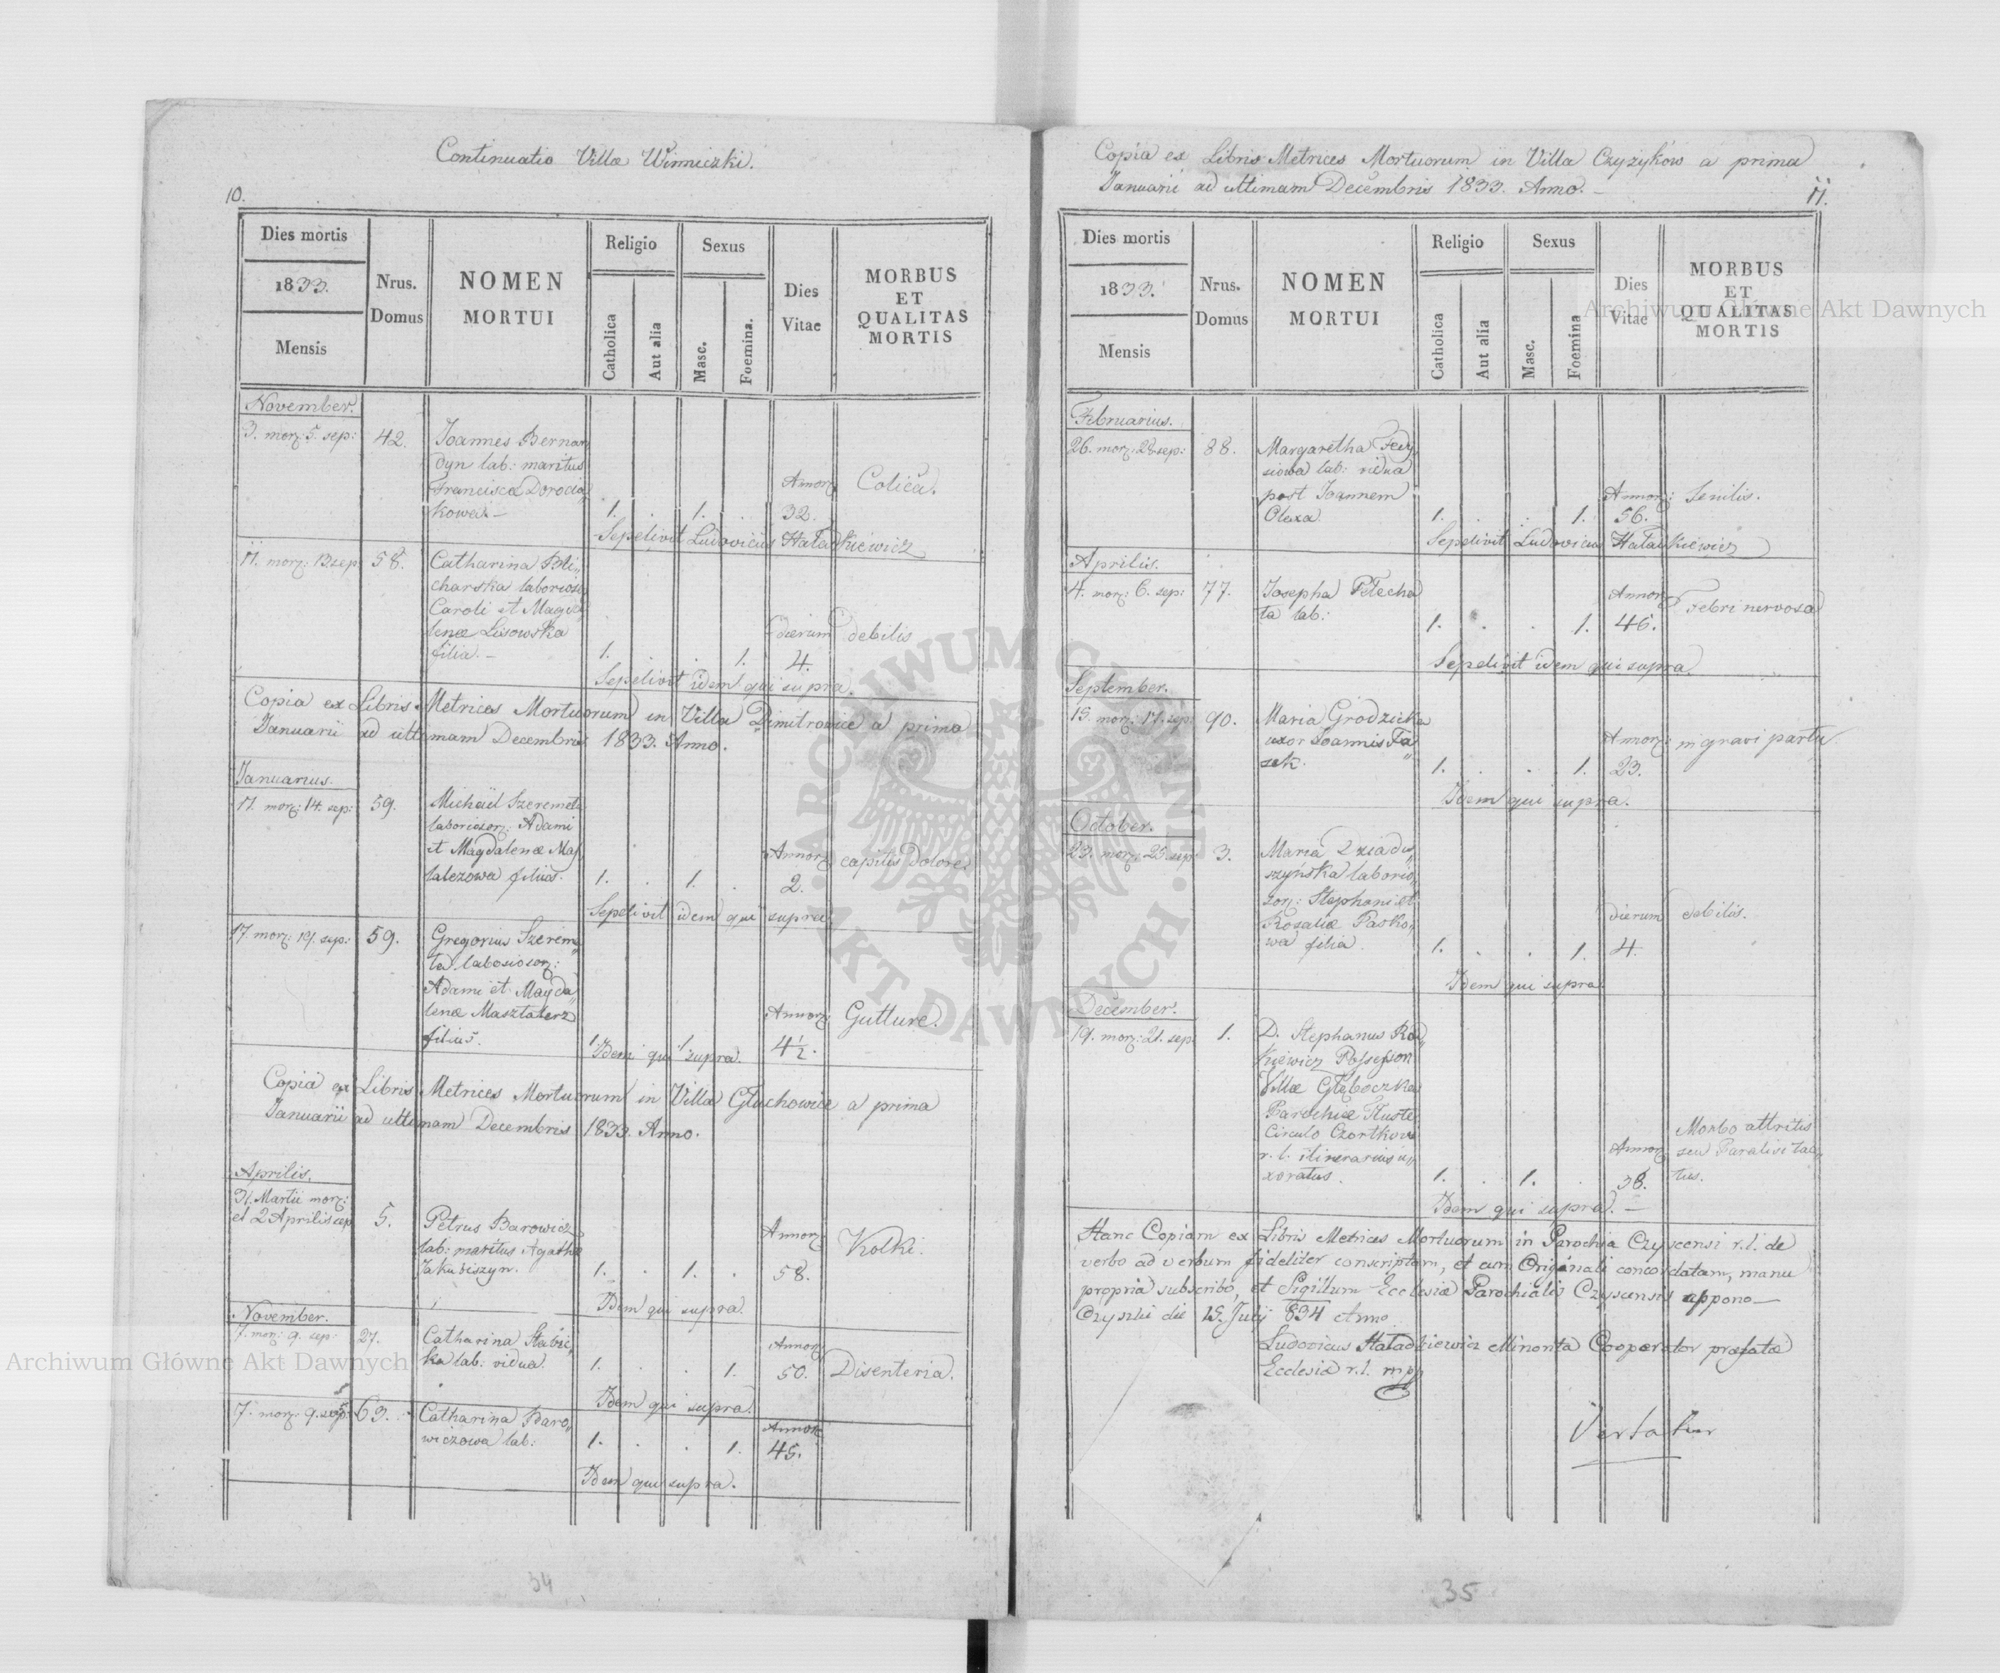 Continuatio Villæ Winniczki.
10.
Dies mortis
1833.
Mensis
Nrus.
Domus
NOMEN
MORTUI
Religio
Catholica
Aut alia
Sexus
Masc.
Foemina.
Dies
Vitae
MORBUS
ET
QUALITAS
MORTIS
November.
3. mor: 5. sep: 42. Joannes Bernar
dyn lab: maritus
Francisca Dorocia
kowa. – Annor: Colica.
1. . 1. . 32.
Sepelivit Ludovicus Hatadkiewicz
11. mor: 13 sep 58. Catharina Bli„
charska laborios:
Caroli et Magda
lenæ Lisowska
filia. – dierum debilis
1. . . 1. 4.
Sepelivit idem qui supra.
Copia ex Libris Metrices Mortuorum in Villa Dimitrowice a prima
Januarii ad ultimam Decembris 1833. Anno.
Januarius.
11. mor: 14. sep: 59. Michaël Szeremeta
laboriosor: Adami
et Magdalenæ Mas
talezowa filius. Annor: capitis dolore.
1. . 1. . 2.
Sepelivit idem qui supra
17. mor: 19. sep: 59. Gregorius Szereme„
ta laboriosor:
Adami et Magda„
lenæ Masztalerz
filius. Annor: Gutture.
1. 1. 4½.
Idem qui supra.
Copia ex Libris Metrices Mortuorum in Villa Głuchowice a prima
Januarii ad ultimam Decembris 1833. Anno.
Aprilis.
31. Martii mor:
et 2 Aprilis sep 5. Petrus Barowicz
lab: maritus Agatha
Jakubiszyn. Annor: Kolki.
1. . 1. . 58.
Idem qui supra.
November.
7. mor: 9. sep: 27. Catharina
ka lab: vidua. Annor:
1. . . 1. 50. Disenteria.
Idem qui supra.
7. mor: 9. sep: 63. Catharina Baro„
wiczowa lab: Annor:
1. . . 1. 45.
Idem qui supra.
34
Copia ex Libris Metrices Mortuorum in Villa Czyżyków a prima
Januarii ad ultimam Decembris 1833. Anno. –
11.
Dies mortis
1833.
Mensis
Nrus.
Domus
NOMEN
MORTUI
Religio
Catholica
Aut alia
Sexus
Masc.
Foemina
Dies
Vitae
MORBUS
ET
QUALITAS
MORTIS
Februarius.
26. mor: 28 sep: 88. Margaretha Fedy
siowa lab: vidua
post Joannem
Olexa. Annor: Senilis.
1. . . 1. 56.
Sepelivit Ludovicus Hatadkiewicz
Aprilis.
4. mor: 6. sep: 77. Josepha Plecha
ta lab: Annor: Febri nervosa
1. . . 1. 46.
Sepelivit idem qui supra
September.
15. mor: 17. sep: 90. Maria Grodzicka
uxor Joannis Ta„
sek. Annor: in gravi partu
1. . . 1. 23.
Idem qui supra.
October.
23. mor: 25 sep: 3. Maria Dziadu„
szyńska laborio„
sor: Stephani et
Rosaliæ Pasko„
wa filia. dierum debilis.
1. . . 1. 4.
Idem qui supra
December.
19. mor: 21. sep. 1. D. Stephanus Ro„
kiewicz Possessor
Villæ Głęboczka
Parochiæ Tłuste
Circulo Czortkow
r. l. itinerarius u„
xoratus. Annor: Morbo attritis
seu Paralisi tac„
tus.
1. . 1. . 38.
Idem qui supra. –
Hanc Copiam ex Libris Metrices Mortuorum in Parochia Czyscensi r. l. de
verbo ad verbum fideliter conscriptam, et cum Originali concordatam, manu
propria subscribo, et Sigillum Ecclesiæ Parochialis Czyscensis appono –
Czyszki die 15. Julij 834 Anno.
Ludovicus Hatadkiewicz Minorita Cooperator præfatæ
Ecclesiæ r. l. mpp
Vertatur
35
Archiwum Główne Akt Dawnych
Archiwum Główne Akt Dawnych
ARCHIWUM GŁÓWNE AKT DAWNYCH